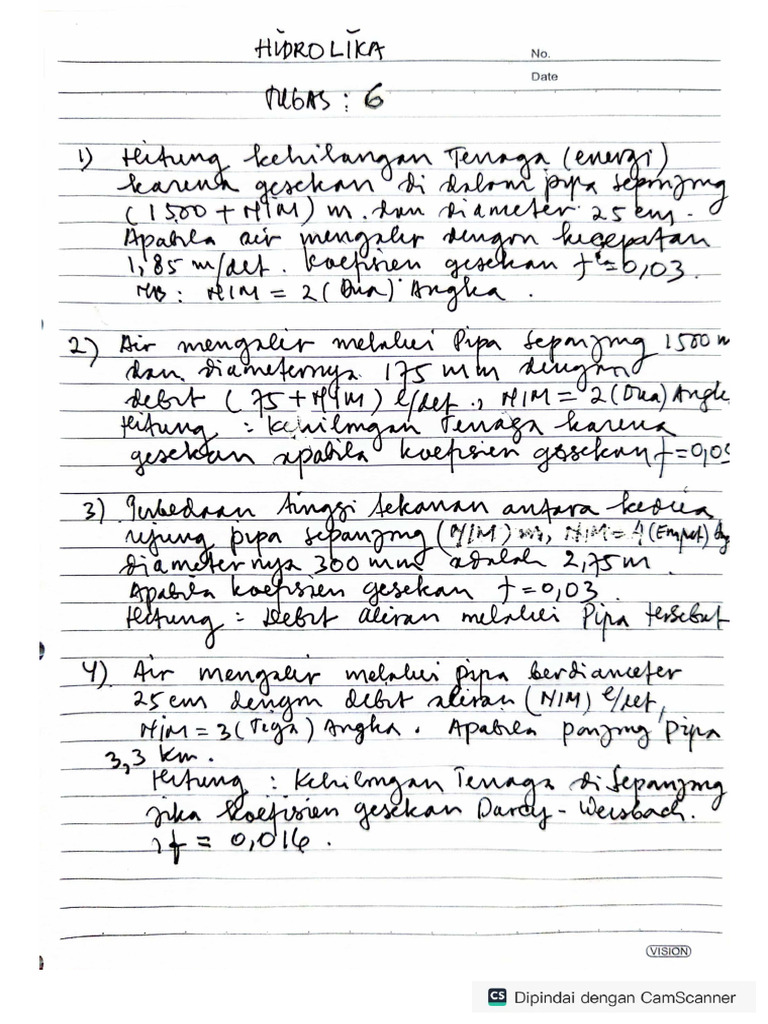 HIDROLIKA
No.
Date
TUGAS : 6
1) Hitung kehilangan Tenaga (energi)
karena gesekan di dalam pipa sepanjang
(1500 + NIM) m. dan diameter 25 cm.
Apabila air mengalir dengan kecepatan
1,85 m/det. koefisien gesekan f = 0,03.
NB : NIM = 2 (Dua) Angka.
2) Air mengalir melalui Pipa sepanjang 1500 m
dan diameternya 175 mm dengan
debit (75 + NIM) l/det., NIM = 2 (Dua) Angk
Hitung : Kehilangan Tenaga karena
gesekan apabila koefisien gesekan f = 0,0
3) Perbedaan tinggi tekanan antara kedua
ujung pipa sepanjang (NIM) m, NIM = 4 (Empat)
diameternya 300 mm adalah 2,75 m.
Apabila koefisien gesekan f = 0,03.
Hitung : Debit aliran melalui Pipa tersebut
4) Air mengalir melalui pipa berdiameter
25 cm dengan debit aliran (NIM) l/det,
NIM = 3 (Tiga) Angka. Apabila panjang Pipa
3,3 km.
Hitung : Kehilangan Tenaga di Sepanjang
jika koefisien gesekan Darcy - Weisbach.
f = 0,016.
VISION
CS Dipindai dengan CamScanner